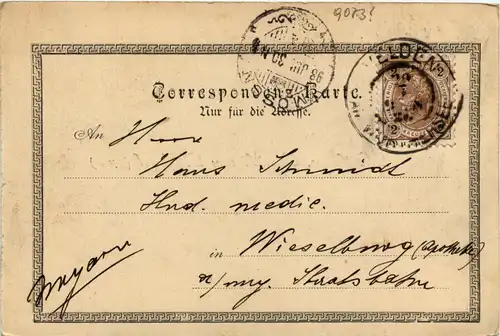 9073!
VELDEN
MOSON
Correspondenz-Karte.
Nur für die Adresse.
An Herr
Hans Schmidt
stud. medic.
in Wieselburg (Apotheke)
a/ung. Staatsbahn
Ungarn